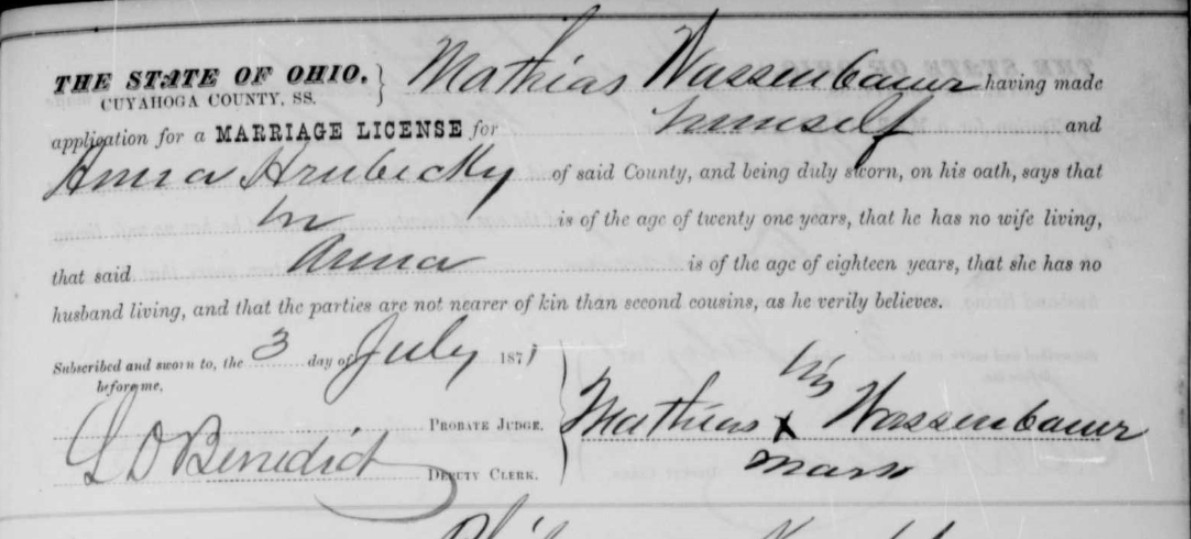 THE STATE OF OHIO, } Mathias Wassenbauer having made
CUYAHOGA COUNTY, SS.
application for a MARRIAGE LICENSE for himself and
Anna Hrubecky of said County, and being duly sworn, on his oath, says that
he is of the age of twenty one years, that he has no wife living,
that said Anna is of the age of eighteen years, that she has no
husband living, and that the parties are not nearer of kin than second cousins, as he verily believes.
Subscribed and sworn to, the 3 day of July 1877
before me,
his
Mathias x Wassenbauer
mark
PROBATE JUDGE.
L D Benedict DEPUTY CLERK.